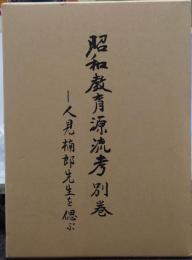 昭和教育源流考 別巻
—人見楠郎先生を偲ぶ